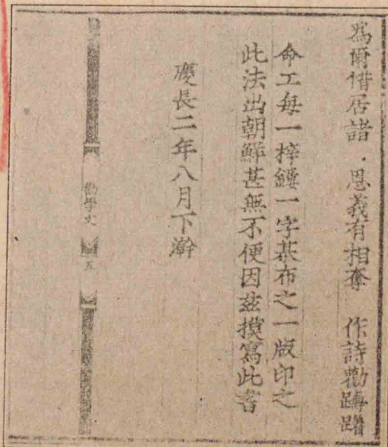 為爾惜居諸 恩義有相奪 作詩勸躊躇
命工每一梓鏤一字棊布之一版印之
此法出朝鮮甚無不便因茲摸寫此書
慶長二年八月下澣
勸學文 五